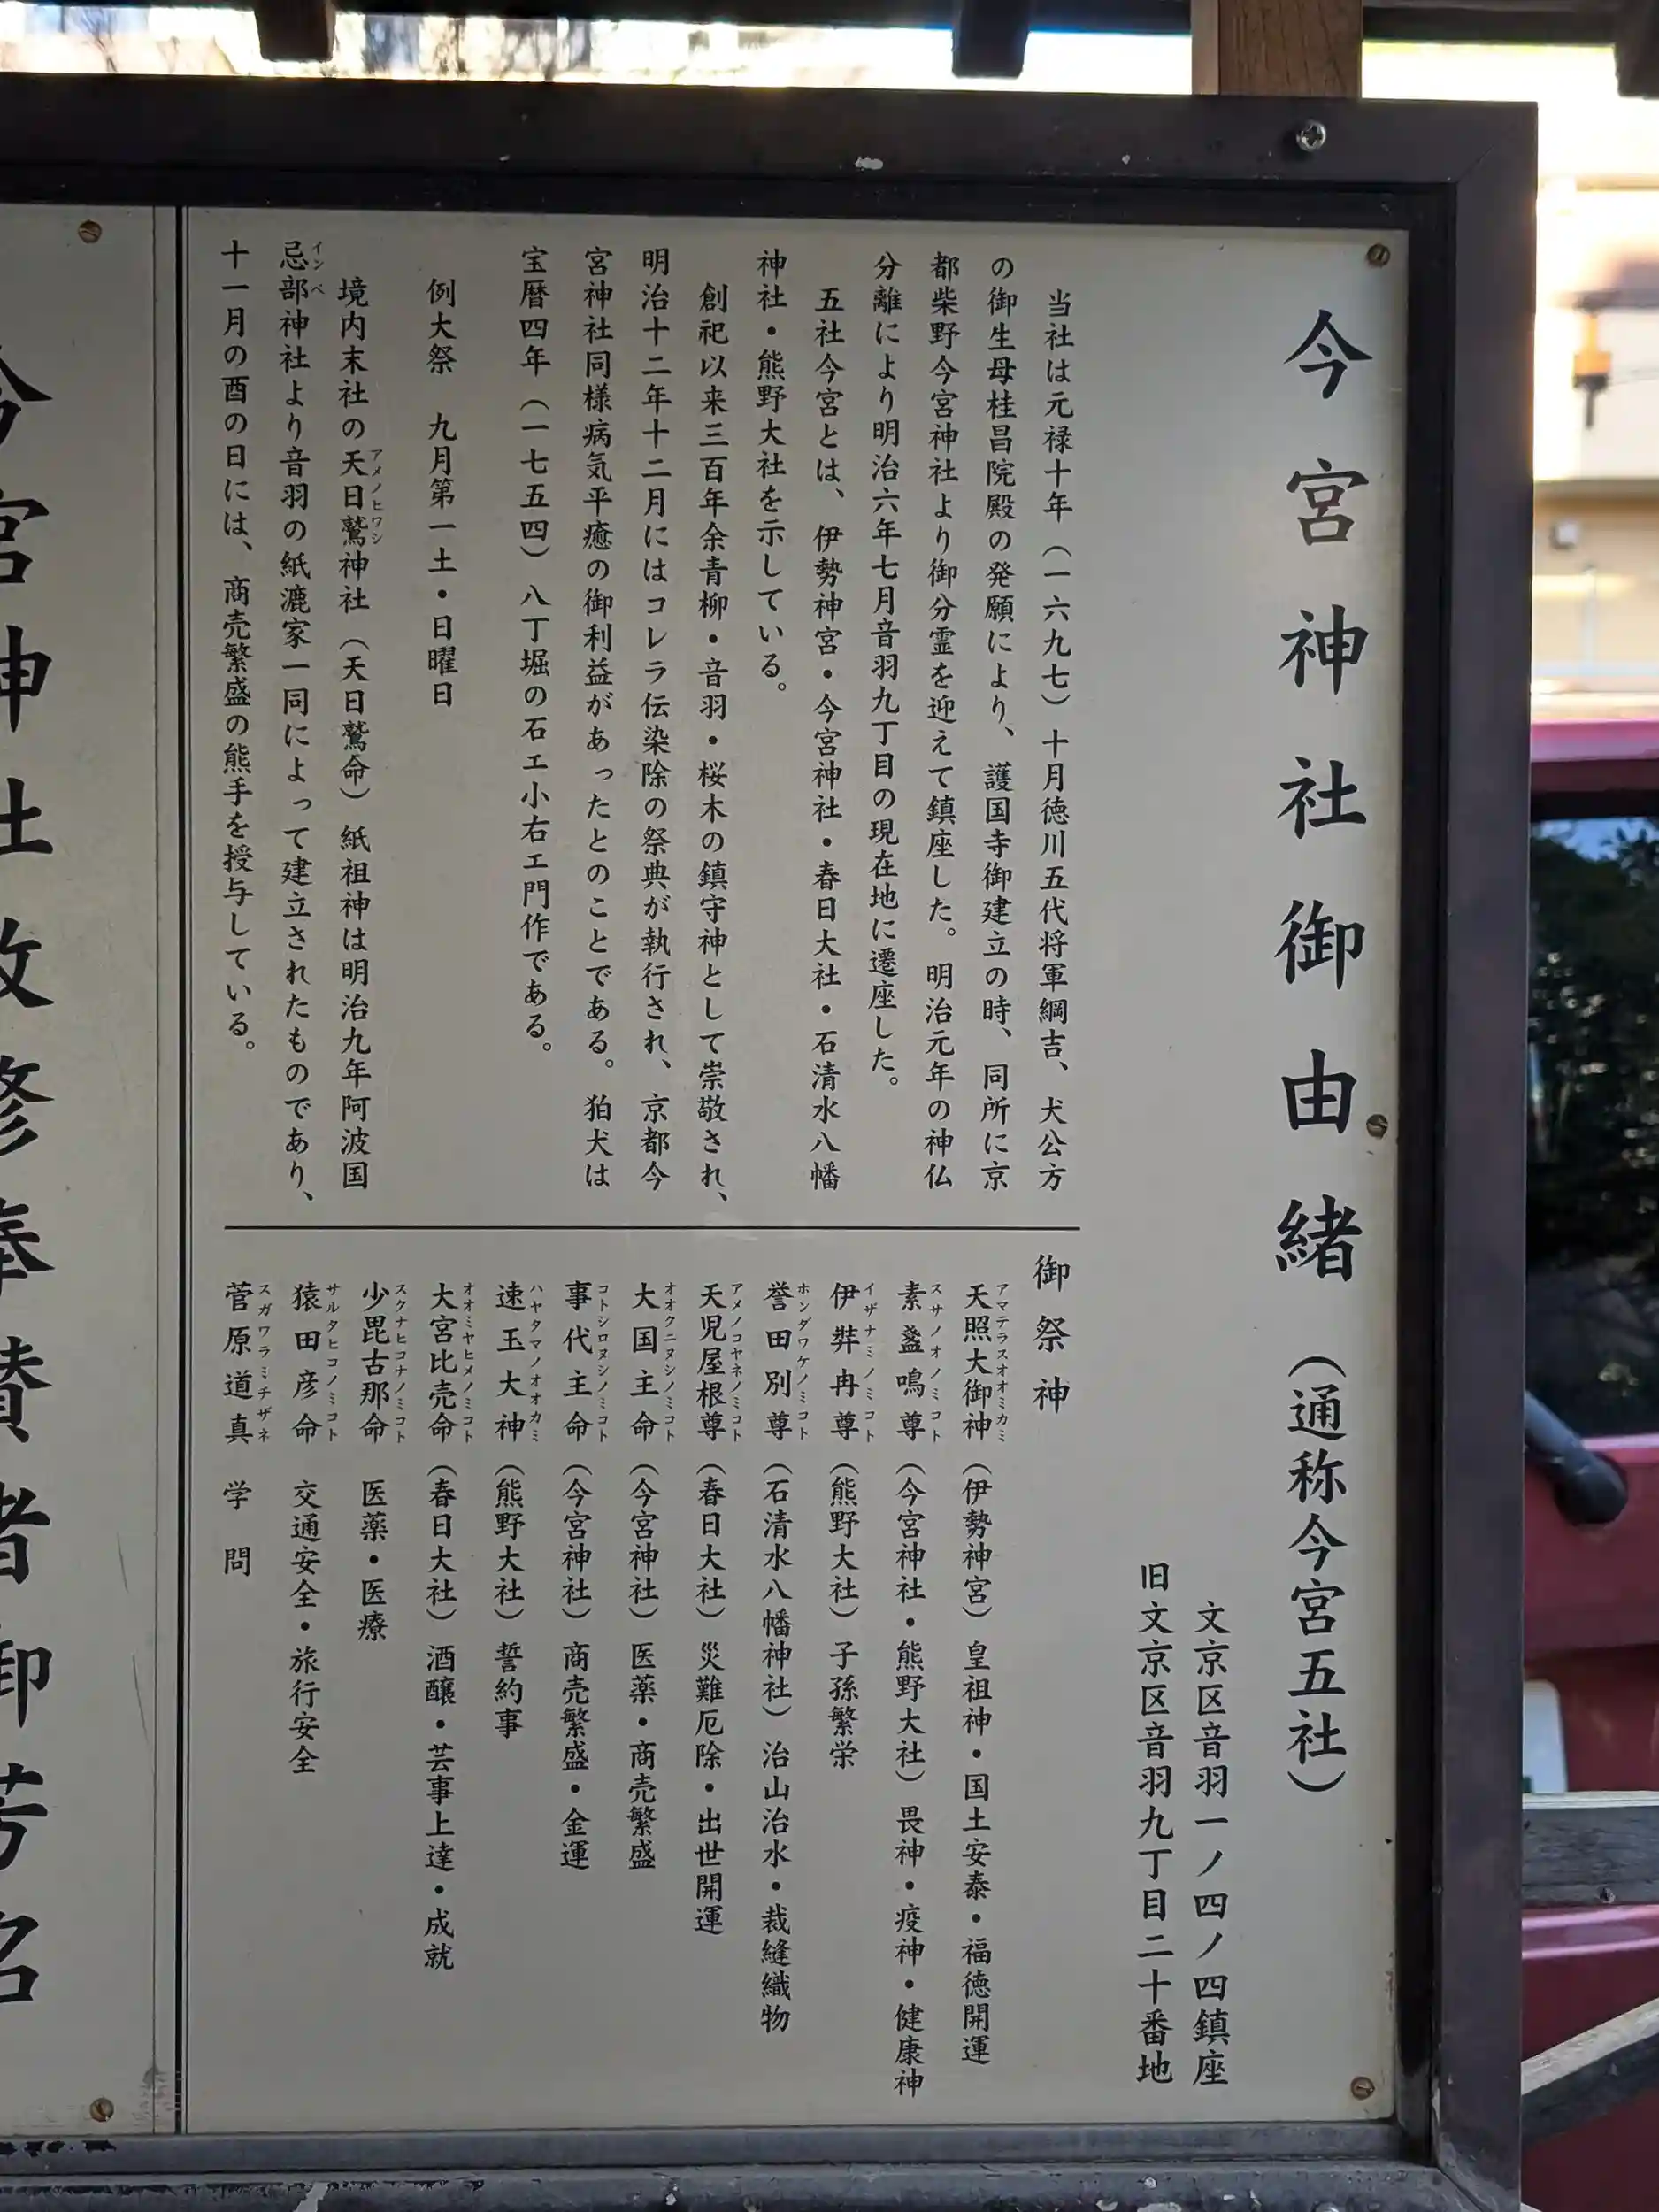 今宮神社御由緒（通称今宮五社）
文京区音羽一ノ四ノ四鎮座
旧文京区音羽九丁目二十番地
当社は元禄十年（一六九七）十月徳川五代将軍綱吉、犬公方
の御生母桂昌院殿の発願により、護国寺御建立の時、同所に京
都柴野今宮神社より御分霊を迎えて鎮座した。明治元年の神仏
分離により明治六年七月音羽九丁目の現在地に遷座した。
五社今宮とは、伊勢神宮・今宮神社・春日大社・石清水八幡
神社・熊野大社を示している。
創祀以来三百年余青柳・音羽・桜木の鎮守神として崇敬され、
明治十二年十二月にはコレラ伝染除の祭典が執行され、京都今
宮神社同様病気平癒の御利益があったとのことである。狛犬は
宝暦四年（一七五四）八丁堀の石エ小右エ門作である。
例大祭　九月第一土・日曜日
境内末社の天日鷲神社（天日鷲命）紙祖神は明治九年阿波国
アメノヒワシ
忌部神社より音羽の紙漉家一同によって建立されたものであり、
インベ
十一月の酉の日には、商売繁盛の熊手を授与している。
御祭神
天照大御神（伊勢神宮）皇祖神・国土安泰・福徳開運
アマテラスオオミカミ
素盞鳴尊（今宮神社・熊野大社）畏神・疫神・健康神
スサノオノミコト
伊弉冉尊（熊野大社）子孫繁栄
イザナミノミコト
誉田別尊（石清水八幡神社）治山治水・裁縫織物
ホンダワケノミコト
天児屋根尊（春日大社）災難厄除・出世開運
アメノコヤネノミコト
大国主命（今宮神社）医薬・商売繁盛
オオクニヌシノミコト
事代主命（今宮神社）商売繁盛・金運
コトシロヌシノミコト
速玉大神（熊野大社）誓約事
ハヤタマノオオカミ
大宮比売命（春日大社）酒醸・芸事上達・成就
オオミヤヒメノミコト
少毘古那命　医薬・医療
スクナヒコナノミコト
猿田彦命　交通安全・旅行安全
サルタヒコノミコト
菅原道真　学問
スガワラミチザネ
今宮神社改修奉賛者御芳名